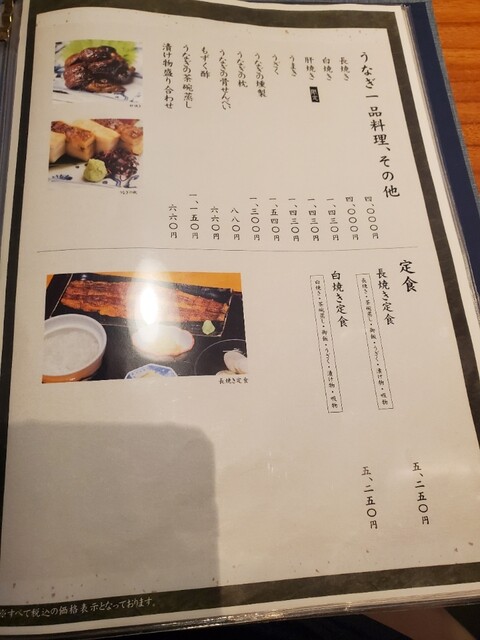 うなぎ一品料理、その他
長焼き 四、〇〇〇円
白焼き 四、〇〇〇円
肝焼き 限定 一、四三〇円
うまき 一、四三〇円
うざく 一、四三〇円
うなぎの燻製 一、五四〇円
うなぎの枕 一、三〇〇円
うなぎの骨せんべい 八八〇円
もずく酢 六六〇円
うなぎの茶碗蒸し 一、一五〇円
漬け物盛り合わせ 六六〇円
定食
長焼き定食 五、二五〇円
長焼き・茶碗蒸し・御飯・うざく・漬け物・吸物
白焼き定食 五、二五〇円
白焼き・茶碗蒸し・御飯・うざく・漬け物・吸物
長焼き定食
※すべて税込の価格表示となっております。